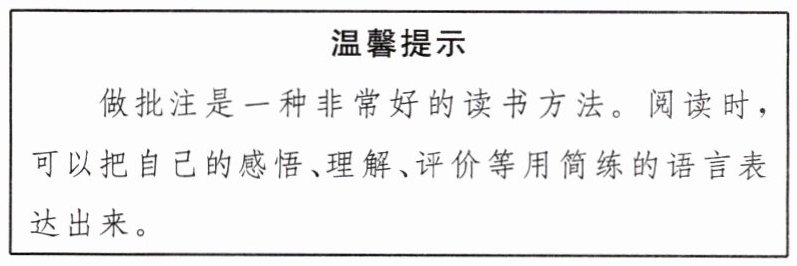 温馨提示
做批注是一种非常好的读书方法。阅读时，
可以把自己的感悟、理解、评价等用简练的语言表
达出来。